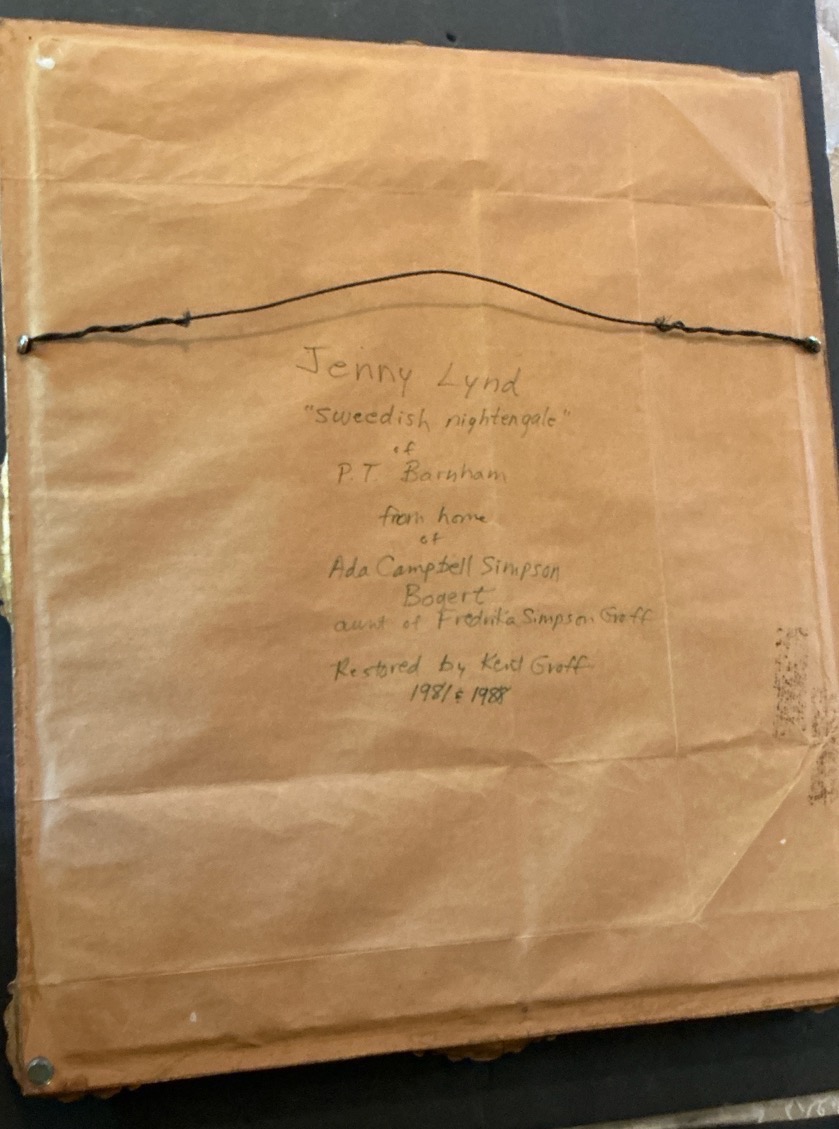 Jenny Lynd
"Sweedish nightengale"
of
P.T. Barnham
from home
of
Ada Campbell Simpson
Bogert
aunt of Fredrika Simpson Groff
Restored by Groff
1981 & 1988